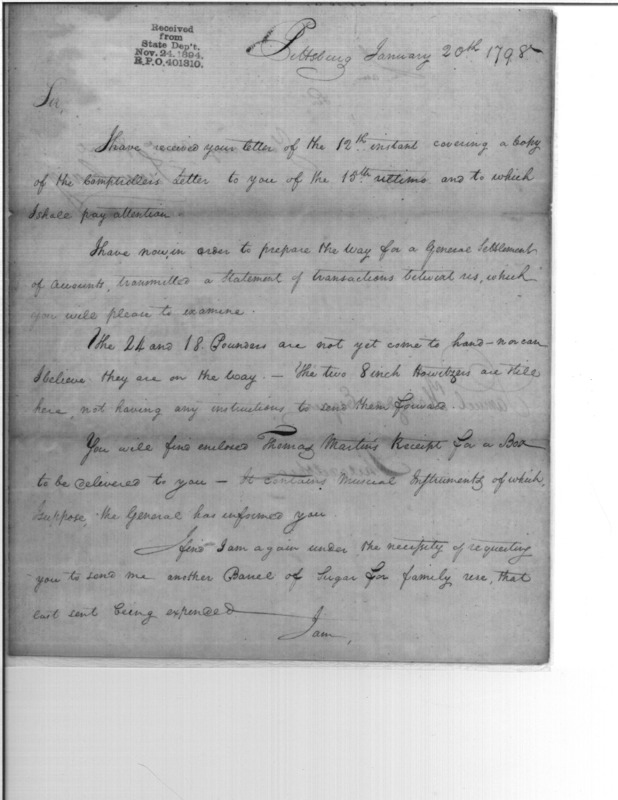 Received
from
State Dep't.
Nov. 24. 1894.
R.P.O. 401310.
Pittsburg January 20th 1798
Sir,
I have received your letter of the 12th instant covering a Copy
of the Comptrollers Letter to you of the 15th ultimo and to which
I shall pay attention
I have now, in order to prepare the way for a General Settlement
of Accounts, transmitted a Statement of transactions betwixt us, which
you will please to examine.
The 24 and 18 Pounders are not yet come to hand – nor can
I believe they are on the way. – The two 8 inch Howitzers are still
here, not having any instructions to send them forward
You will find enclosed Thomas Martins Receipt for a Box
to be delivered to you – It contains Musical Instruments of which,
I suppose, the General has informed you.
I find I am again under the necessity of requesting
you to send me another Barrel of Sugar for family use, that
last sent being expended
I am,